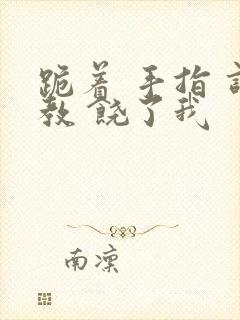 跪着 手指
教 饶了我
南凛